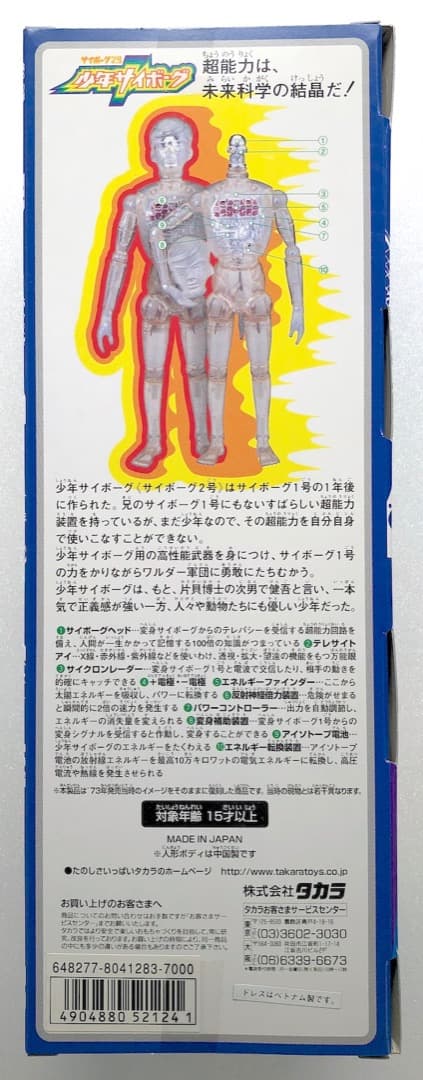 サイボーグ2号
少年サイボーグ
超能力は、
未来科学の結晶だ!
①
②
③
⑤
④
⑦
⑩
⑥
⑨
⑧
少年サイボーグ《サイボーグ2号》はサイボーグ1号の1年後
に作られた。兄のサイボーグ1号にもないすばらしい超能力
装置を持っているが、まだ少年なので、その超能力を自分自身
で使いこなすことができない。
少年サイボーグ用の高性能武器を身につけ、サイボーグ1号
の力をかりながらワルダー軍団に勇敢にたちむかう。
少年サイボーグは、もと、片貝博士の次男で健吾と言い、一本
気で正義感が強い一方、人々や動物たちにも優しい少年だった。
①サイボーグヘッド…変身サイボーグからのテレパシーを受信する超能力回路を
備え、人間が一生かかって記憶する100倍の知識がつまっている ②テレサイト
アイ…X線・赤外線・紫外線などを使いわけ、透視・拡大・望遠の機能をもつ万能眼
③サイクロンレーダー…変身サイボーグ1号と電波で交信したり、相手の動きを
的確にキャッチできる ④+電極・-電極 ⑤エネルギーファインダー…ここから
太陽エネルギーを吸収し、パワーに転換する ⑥反射神経倍力装置…危険がせまる
と瞬間的に2倍の速力を発生する ⑦パワーコントローラー…出力を自動調節し、
エネルギーの消失量を変えられる ⑧変身補助装置…変身サイボーグ1号からの
変身シグナルを受信すると作動し、変身することができる ⑨アイソトープ電池…
少年サイボーグのエネルギーをたくわえる ⑩エネルギー転換装置…アイソトープ
電池の放射線エネルギーを最高10万キロワットの電気エネルギーに転換し、高圧
電流や熱線を発生させられる
※本製品は'73年発売当時のイメージをそのままに復刻した商品です。当時の現物とは若干異なります。
対象年齢 15才以上
MADE IN JAPAN
※人形ボディは中国製です
●たのしさいっぱいタカラのホームページ http://www.takaratoys.co.jp
株式会社タカラ
お買い上げのお客さまへ
タカラお客さまサービスセンター
東京
(03)3602-3030
大阪
(06)6339-6673
648277-8041283-7000
4904880 521241
ドレスはベトナム製です。